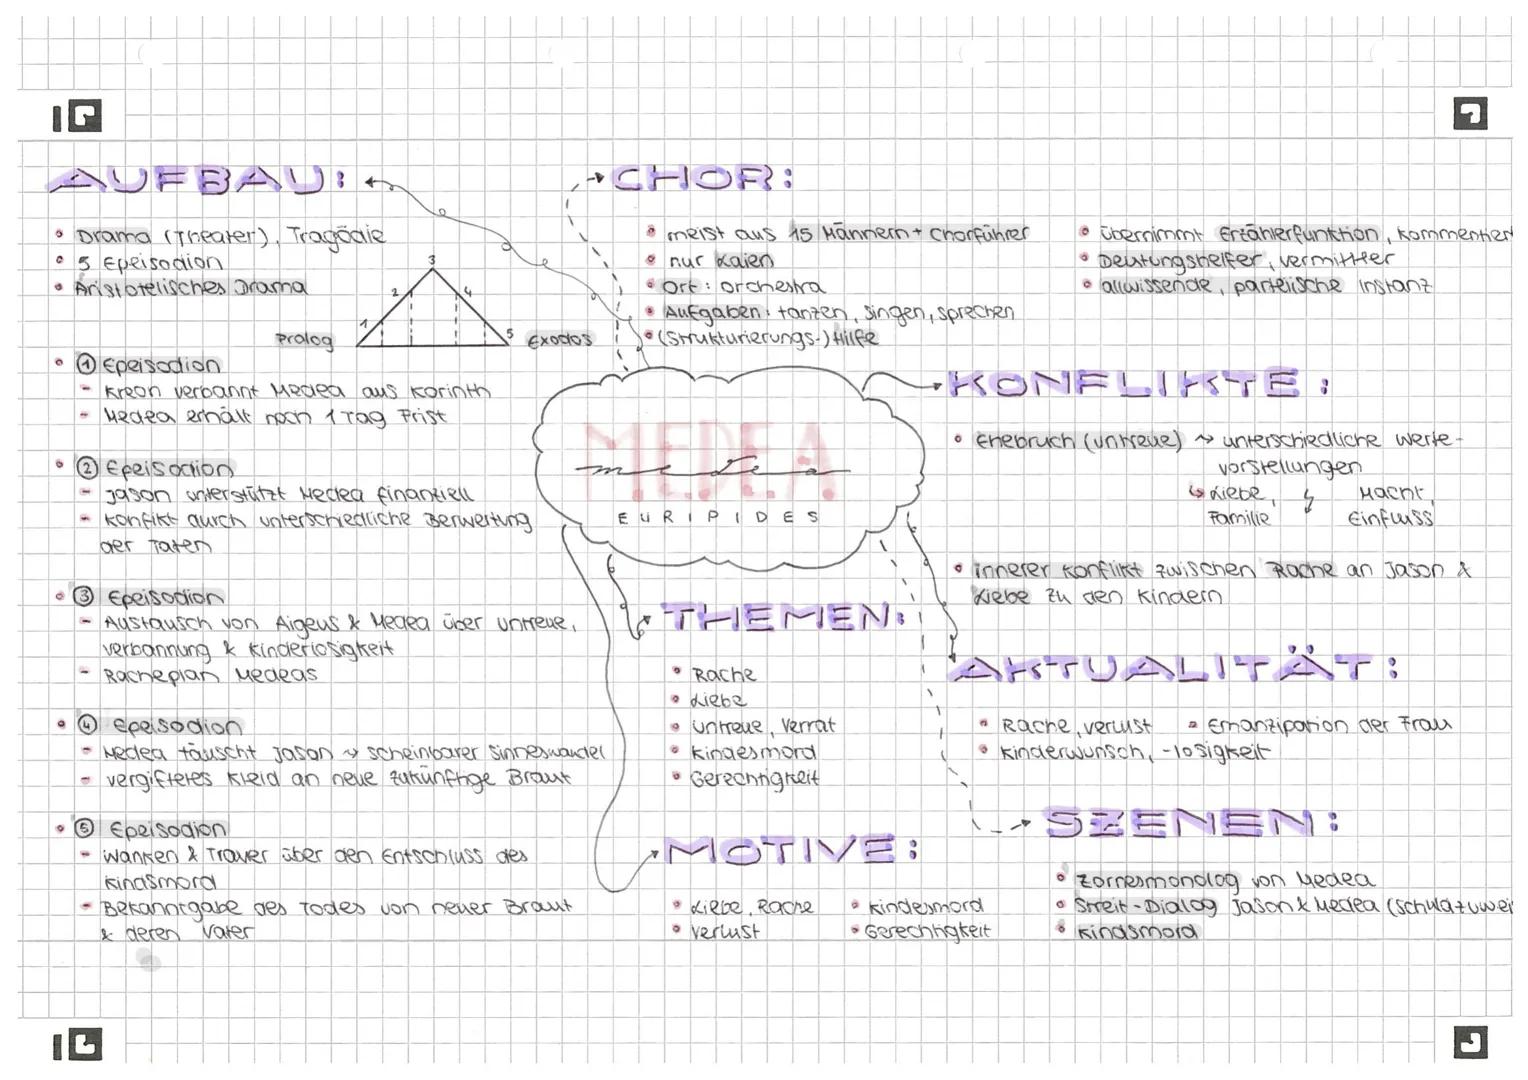 AUFBAU:
• Drama (Theater), Tragödie
• 5 Epeisodion
• Aristotelisches Drama
1 2 3 4 5
Prolog
Exodos
• ① Epeisodion
- Kreon verbannt Medea aus Korinth
- Medea erhält noch 1 Tag Frist
• ② Epeisodion
- Jason unterstützt Medea finanziell
- Konfikt durch unterschiedliche Berwertung
der Taten
• ③ Epeisodion
- Austausch von Aigeus & Medea über Untreue,
Verbannung & Kinderlosigkeit
- Racheplan Medeas
• ④ Epeisodion
- Medea täuscht Jason ↝ scheinbarer Sinneswandel
- vergiftetes Kleid an neue zukünftige Braut
• ⑤ Epeisodion
- Wanken & Trauer über den Entschluss des
Kindsmord
- Bekanntgabe des Todes von neuer Braut
& deren Vater
CHOR:
• meist aus 15 Männern + Chorführer
• nur Laien
• Ort: Orchestra
• Aufgaben: tanzen, singen, sprechen
• (Strukturierungs-) Hilfe
• übernimmt Erzählerfunktion, kommentier
• Deutungshelfer, Vermittler
• allwissende, parteiische Instanz
MEDEA
medea
EURIPIDES
KONFLIKTE:
• Ehebruch (Untreue) ↝ unterschiedliche Werte-
vorstellungen
↳ Liebe, ↯ Macht,
Familie Einfluss
• innerer Konflikt zwischen Rache an Jason &
Liebe zu den Kindern
THEMEN:
• Rache
• Liebe
• Untreue, Verrat
• Kindesmord
• Gerechtigkeit
AKTUALITÄT:
• Rache, Verlust • Emanzipation der Frau
• Kinderwunsch, -losigkeit
MOTIVE:
• Liebe, Rache • Kindesmord
• Verlust • Gerechtigkeit
SZENEN:
• Zornesmonolog von Medea
• Streit-Dialog Jason & Medea (Schuldzuwei
• Kindsmord